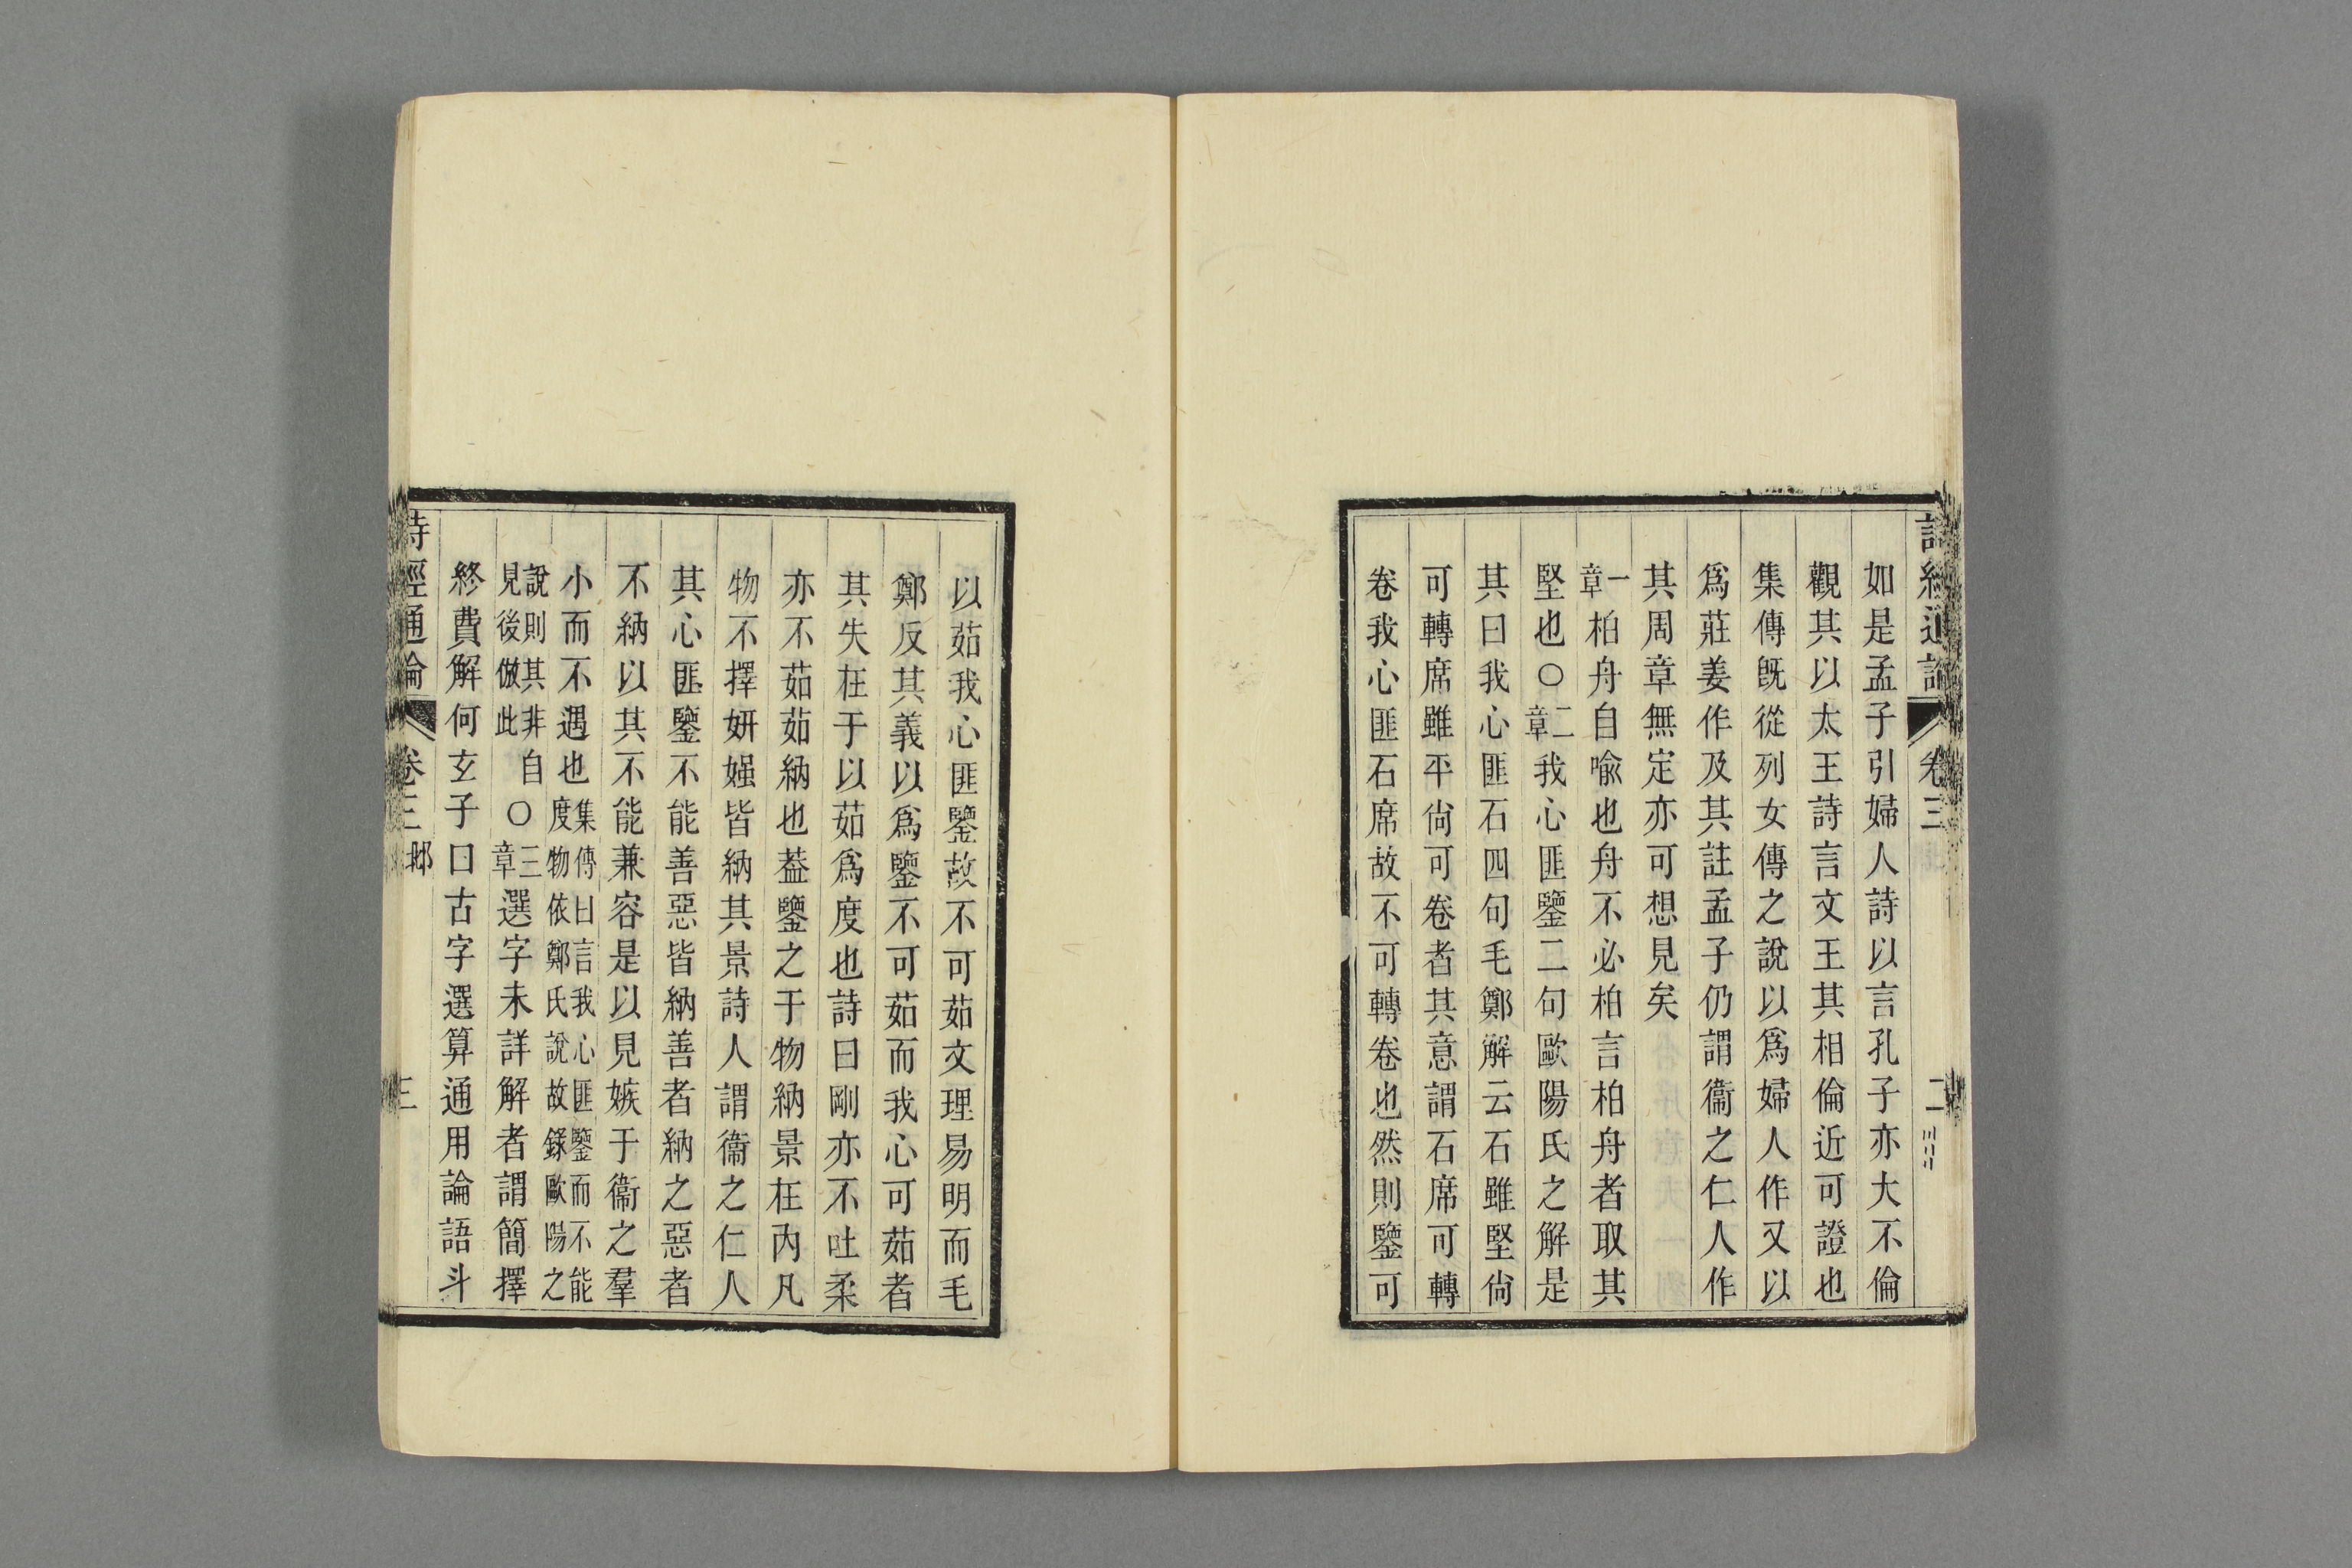 詩經通論 卷三 二
如是孟子引婦人詩以言孔子亦大不倫
觀其以太王詩言文王其相倫近可證也
集傳既從列女傳之說以爲婦人作又以
爲莊姜作及其註孟子仍謂衞之仁人作
其周章無定亦可想見矣
一章柏舟自喩也舟不必柏言柏舟者取其
堅也○二章我心匪鑒二句歐陽氏之解是
其曰我心匪石四句毛鄭解云石雖堅尙
可轉席雖平尙可卷者其意謂石席可轉
卷我心匪石席故不可轉卷也然則鑒可
以茹我心匪鑒故不可茹文理易明而毛
鄭反其義以爲鑒不可茹而我心可茹者
其失在于以茹爲度也詩曰剛亦不吐柔
亦不茹茹納也葢鑒之于物納景在內凡
物不擇妍媸皆納其景詩人謂衞之仁人
其心匪鑒不能善惡皆納善者納之惡者
不納以其不能兼容是以見嫉于衞之羣
小而不遇也集傳曰言我心匪鑒而不能
度物依鄭氏說故錄歐陽之
說則其非自
見後倣此○三章選字未詳解者謂簡擇
終費解何玄子曰古字選算通用論語斗
詩經通論 卷三 邶 三